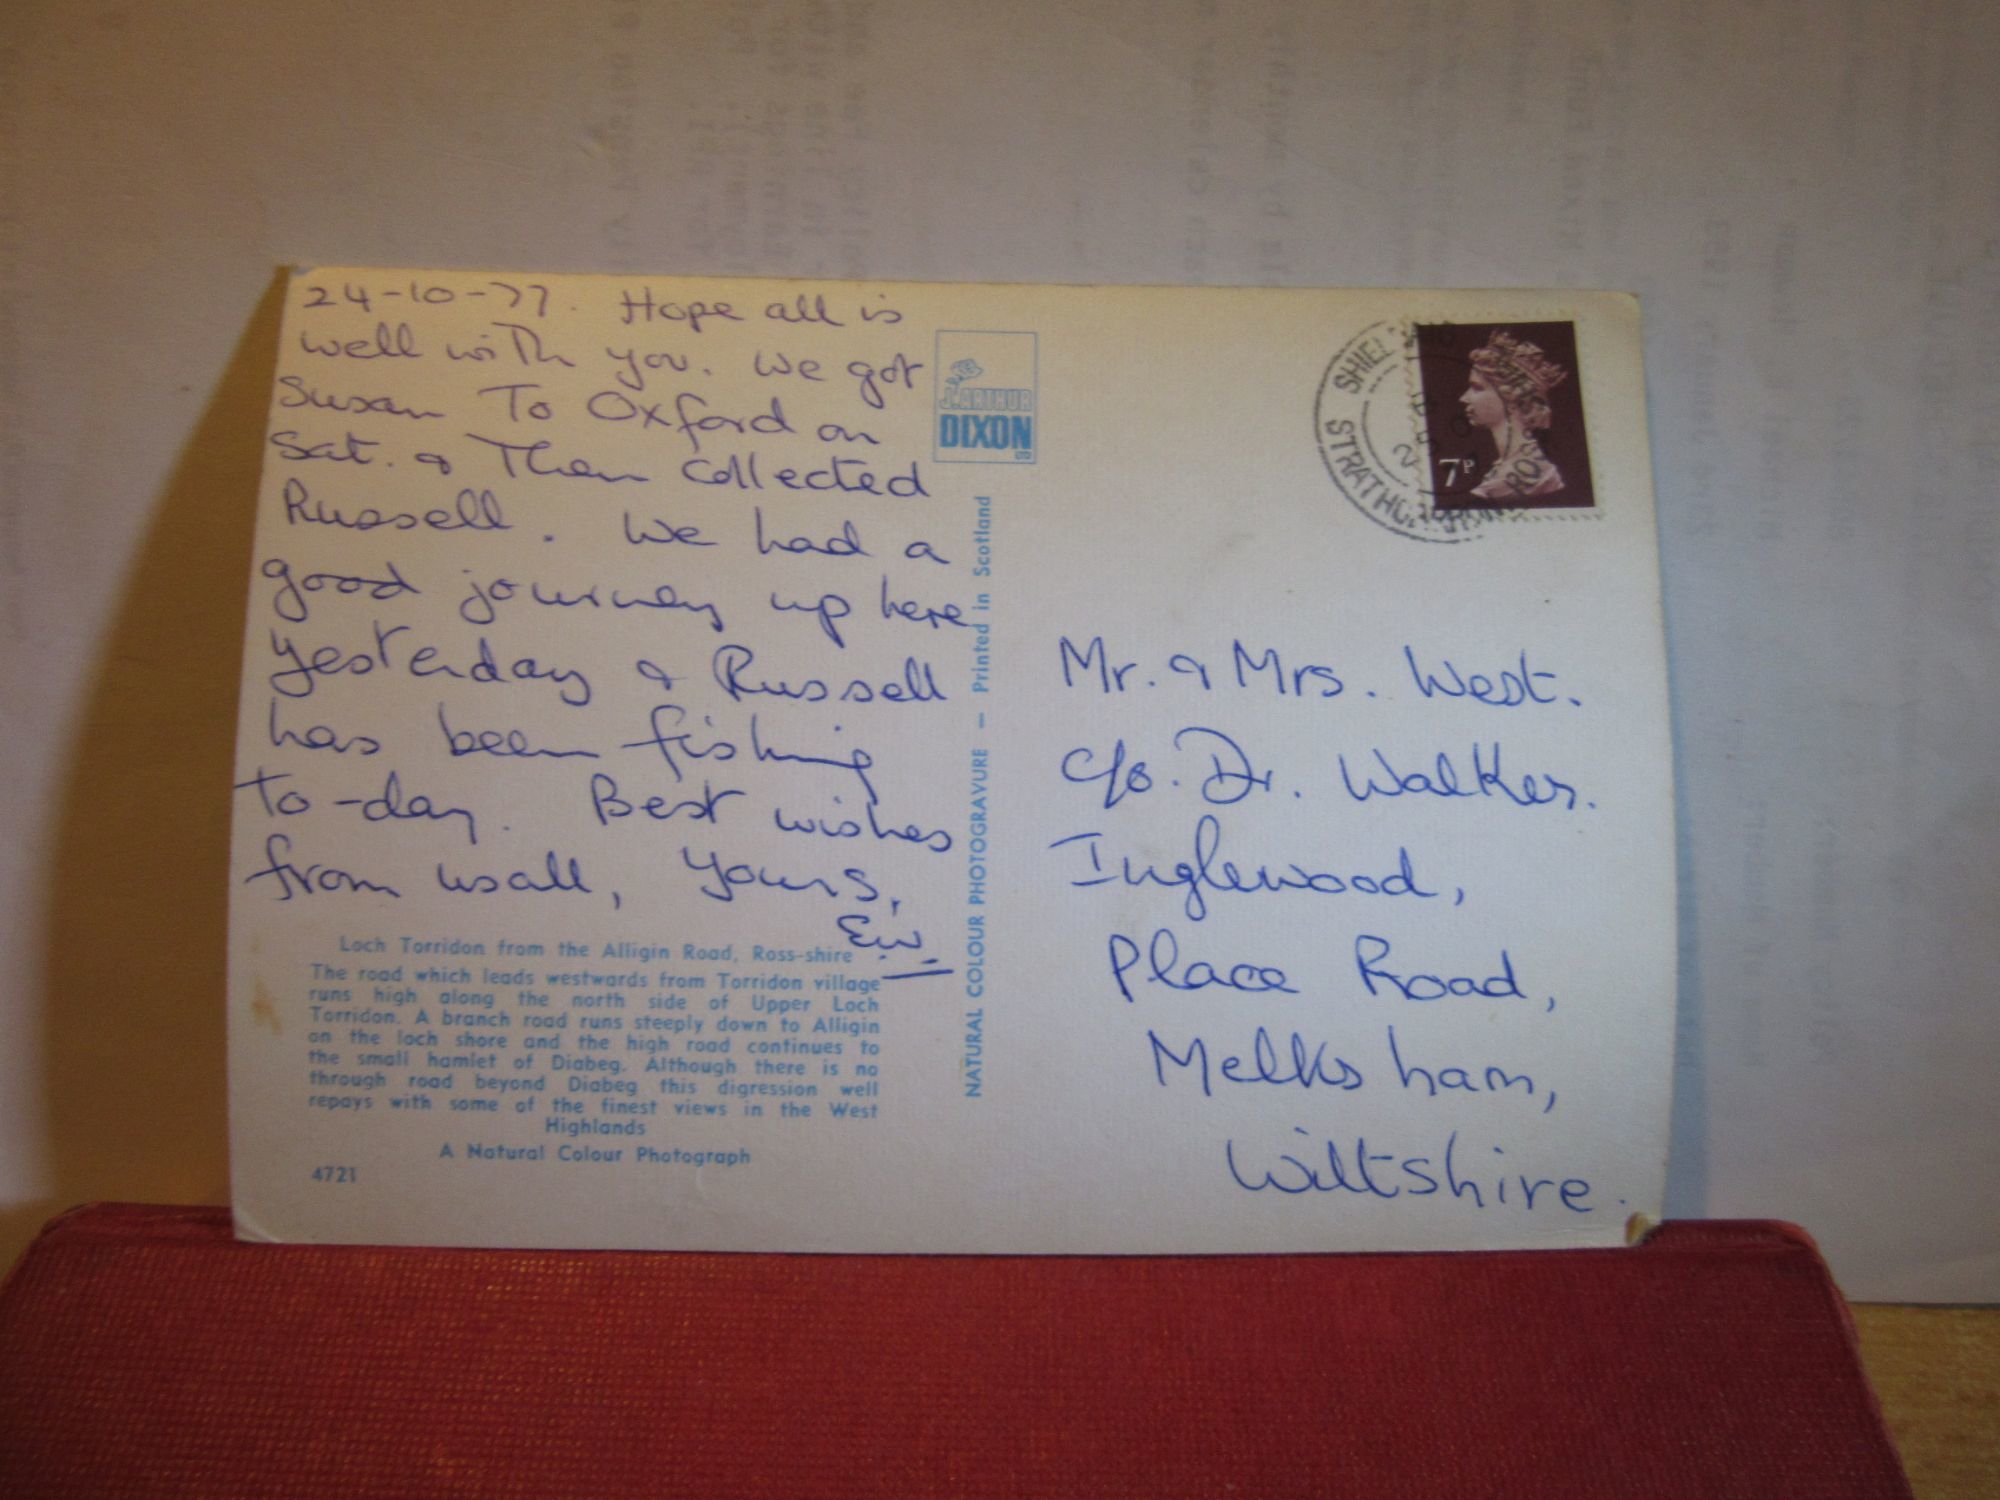 24-10-77. Hope all is
well with you. We got
Susan To Oxford on
Sat. & Then collected
Russell. We had a
good journey up here
yesterday & Russell
has been fishing
To-day. Best wishes
from us all, Yours,
E.W.
Loch Torridon from the Alligin Road, Ross-shire
The road which leads westwards from Torridon village
runs high along the north side of Upper Loch
Torridon. A branch road runs steeply down to Alligin
on the loch shore and the high road continues to
the small hamlet of Diabeg. Although there is no
through road beyond Diabeg this digression well
repays with some of the finest views in the West
Highlands
A Natural Colour Photograph
4721
J. ARTHUR
DIXON
LTD
NATURAL COLOUR PHOTOGRAVURE — Printed in Scotland
7P
Mr. & Mrs. West.
c/o. Dr. Walker.
Inglewood,
Place Road,
Melksham,
Wiltshire.